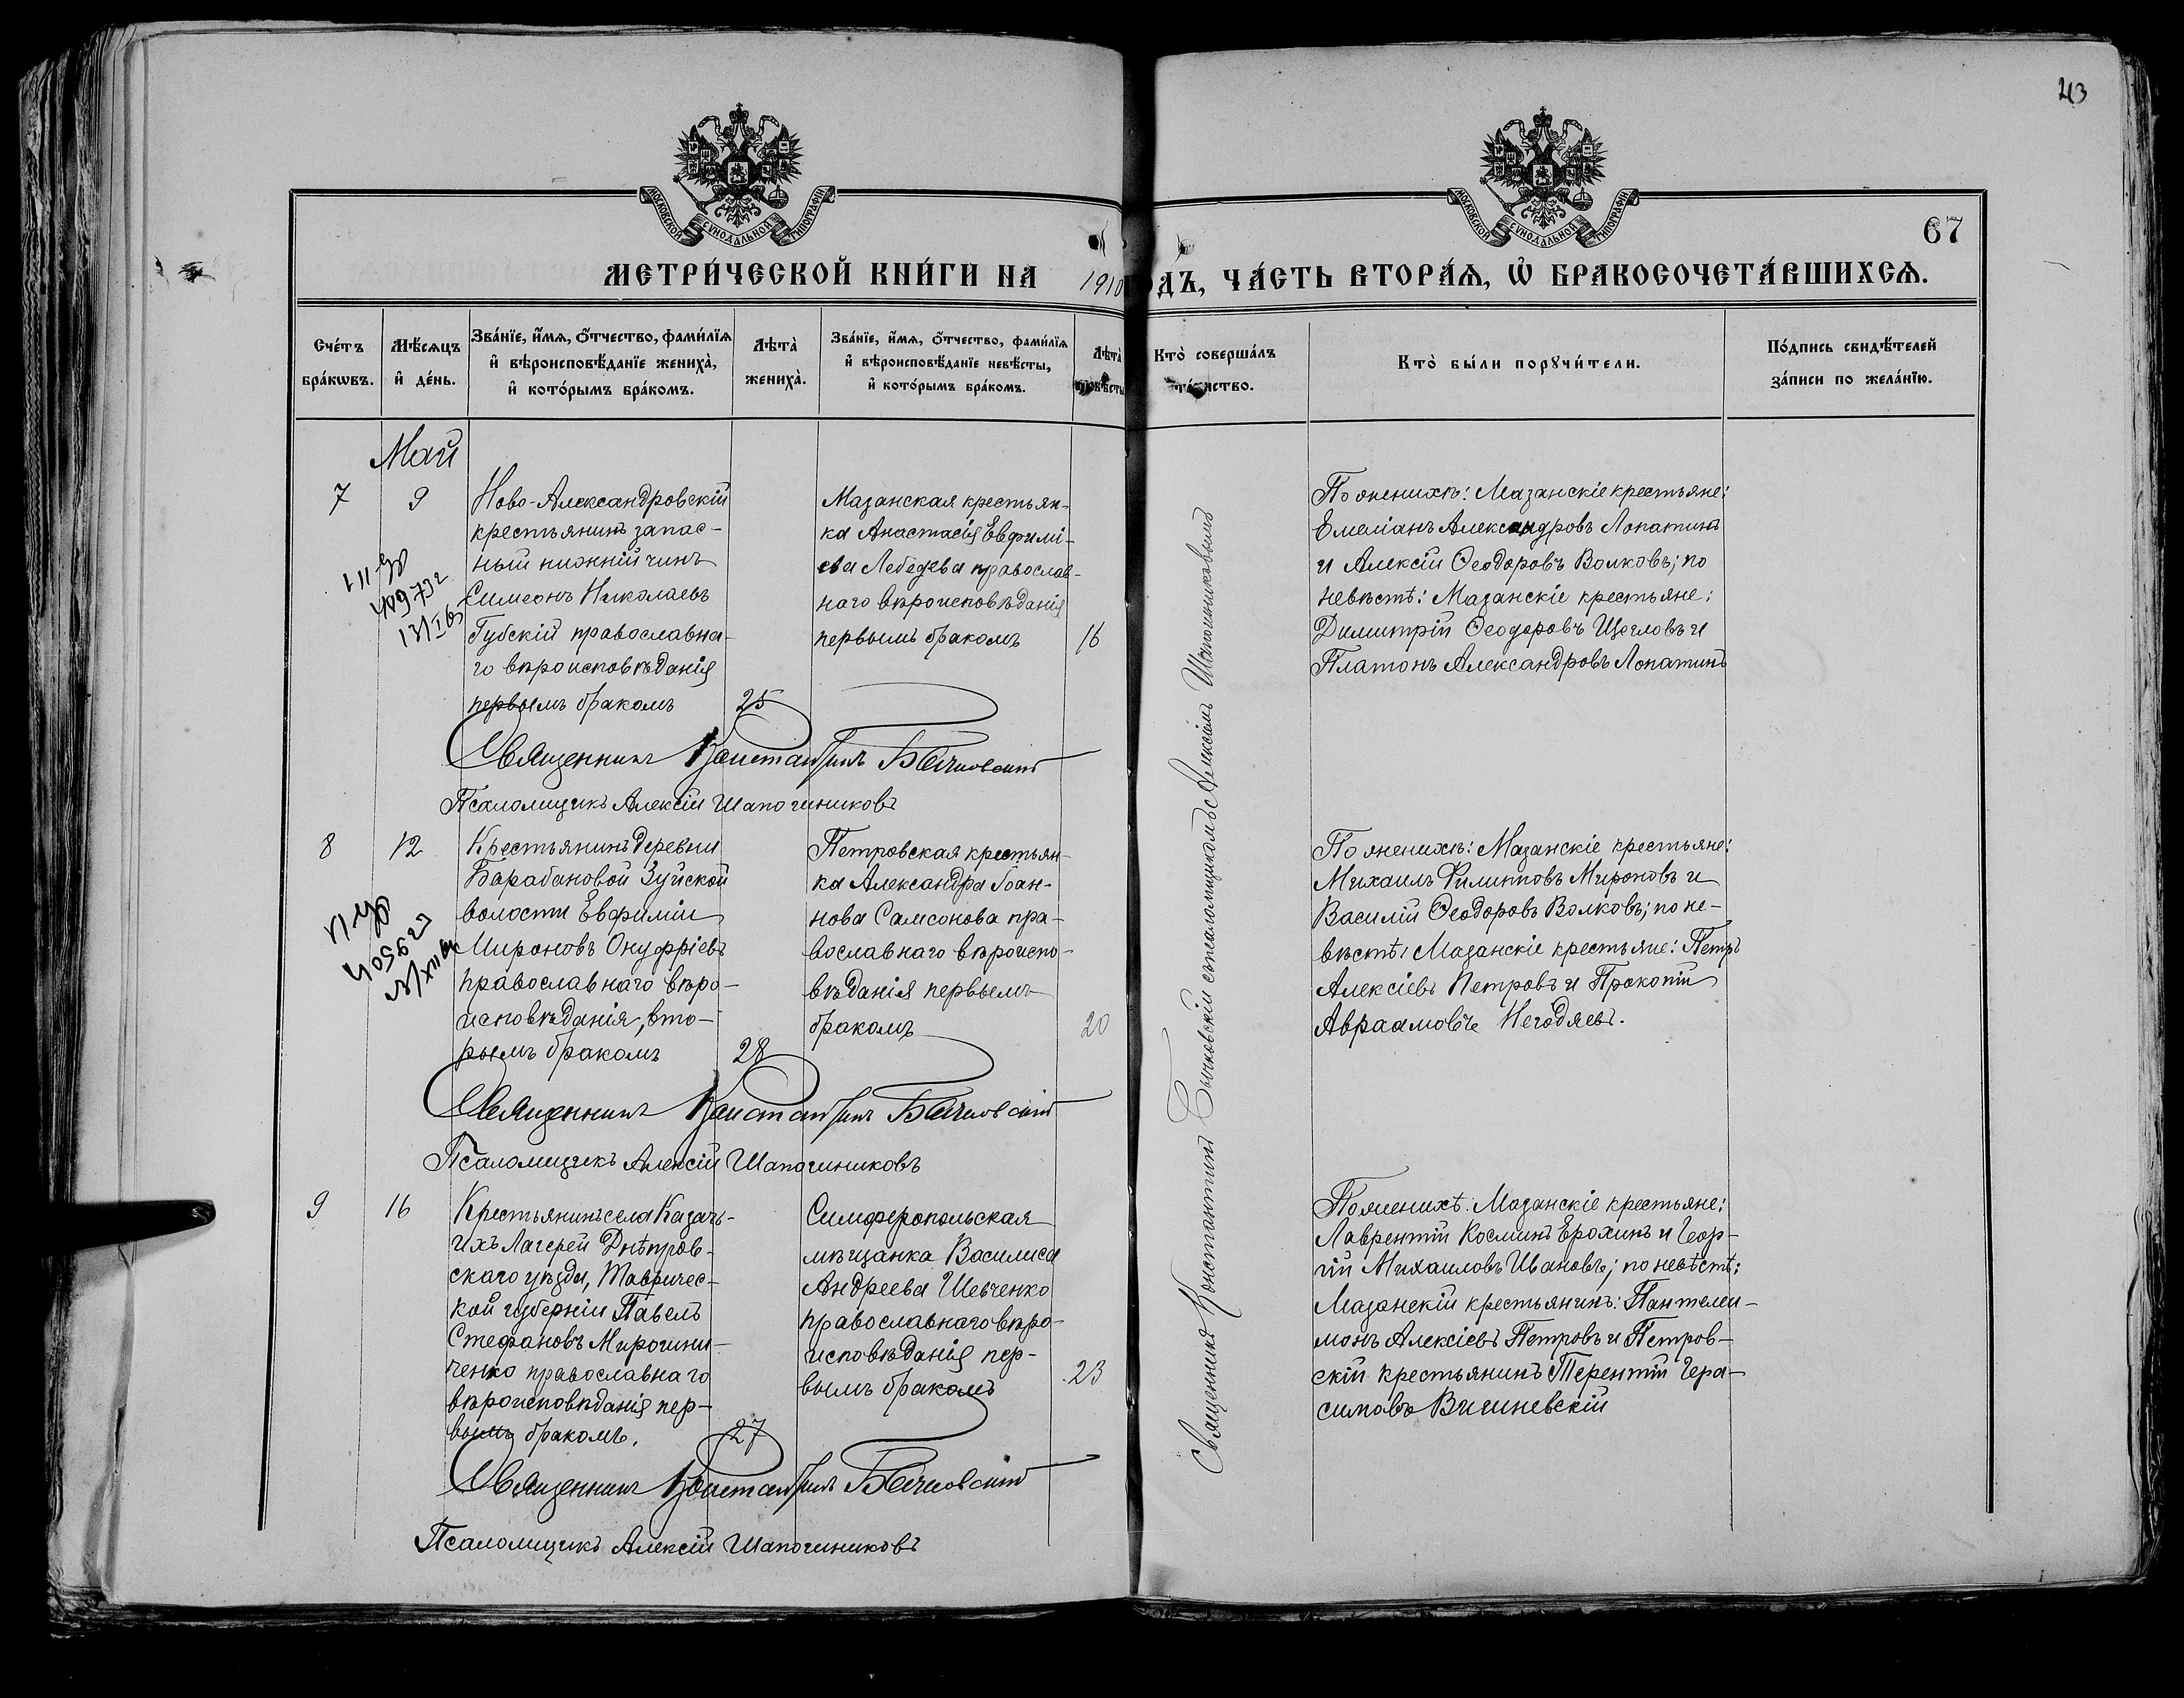 43
МОСКОВСКОЙ СѴНОДАЛЬНОЙ ТИПОГРАФІИ
МОСКОВСКОЙ СѴНОДАЛЬНОЙ ТИПОГРАФІИ
67
МЕТРИ́ЧЕСКОЙ КНИ́ГИ НА 1910 ОДЪ, ЧА́СТЬ ВТОРА́Ѧ, Ѿ БРАКОСОЧЕТА́ВШИХСѦ.
Сче́тъ бра́кωвъ.
Мѣ́сѧцъ и҆ де́нь.
Зва́нїе, и҆́мѧ, ѻ҆́тчество, фами́лїѧ
и҆ вѣроисповѣ́данїе жениха̀,
и҆ кото́рымъ бра́комъ.
Лѣ́та̀ жениха̀.
Зва́нїе, и҆́мѧ, ѻ҆́тчество, фами́лїѧ
и҆ вѣроисповѣ́данїе невѣ́сты,
и҆ кото́рымъ бра́комъ.
Лѣ́та̀ невѣ́сты
Кто̀ соверша́лъ та́инство.
Кто̀ бы́ли порꙋчи́тели.
По́дпись свидѣ́телей
за́писи по жела́нїю.
Май
7
9
Ново-Александровскій
крестьянинъ запас-
ный нижній чинъ
Симеонъ Николаевъ
Губскій православна-
го вѣроисповѣданія
первымъ бракомъ
25
Мазанская крестьян-
ка Анастасія Евфимі-
ева Лебедева православ-
наго вѣроисповѣданія
первымъ бракомъ
16
По женихѣ: Мазанскіе крестьяне:
Емеліанъ Александровъ Лопатинъ
и Алексій Ѳеодоровъ Волковъ; по
невѣстѣ: Мазанскіе крестьяне:
Димитрій Ѳеодоровъ Щегловъ и
Платонъ Александровъ Лопатинъ
Священникъ Константинъ Бычковскій
Псаломщикъ Алексій Шапошниковъ
8
12
Крестьянинъ деревни
Барабановой Зуйской
волости Евфимій
Мироновъ Онуфріевъ
православнаго вѣро-
исповѣданія, вто-
рымъ бракомъ
28
Петровская крестьян-
ка Александра Іоан-
нова Самсонова пра-
вославнаго вѣроиспо-
вѣданія первымъ
бракомъ
20
По женихѣ: Мазанскіе крестьяне:
Михаилъ Филипповъ Мироновъ и
Василій Ѳеодоровъ Волковъ; по не-
вѣстѣ: Мазанскіе крестьяне: Петръ
Алексіевъ Петровъ и Прокопій
Авраамовъ Негодяевъ.
Священникъ Константинъ Бычковскій
Псаломщикъ Алексій Шапошниковъ
9
16
Крестьянинъ села Казачь-
ихъ Лагерей Днѣпров-
скаго уѣзда, Тавричес-
кой губерніи Павелъ
Стефановъ Мирошни-
ченко православнаго
вѣроисповѣданія пер-
вымъ бракомъ.
27
Симферопольская
мѣщанка Василиса
Андреева Шевченко
православнаго вѣро-
исповѣданія пер-
вымъ бракомъ
23
По женихѣ: Мазанскіе крестьяне:
Лаврентій Косминъ Ерохинъ и Геор-
гій Михаиловъ Ивановъ; по невѣстѣ:
Мазанскій крестьянинъ: Пантелеи-
монъ Алексіевъ Петровъ и Петров-
скій крестьянинъ Терентій Гера-
симовъ Вишневскій
Священникъ Константинъ Бычковскій
Псаломщикъ Алексій Шапошниковъ
Священникъ Константинъ Бычковскій съ псаломщикомъ Алексіемъ Шапошниковымъ